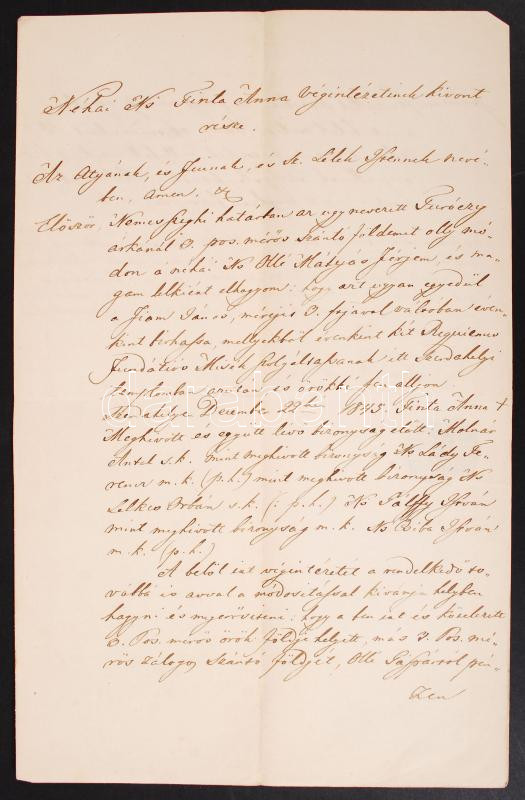 Néhai Ns Finta Anna végintézetinek kivont
része.
Az Atyának, és Fiúnak, és Sz. Lélek Istennek nevé-
ben, Amen. &
Először, Nemesszeghi határban az ugy nevezett Turóczy
árkánál 3. pos. mérős szántó földemet olly mó-
don a néhai Ns Ollé Mátyás férjem, és ma-
gam lelkiért elhagyom: hogy azt ugyan egyedül
a Fiam János, mérjéis 3. fejával válsóban éven-
kint birhassa, mellyekből évenkint két Requiemes
Fundátiós Misék szolgáltassanak itt Szerdahelyi
templomban azután és örökké fen álljon.
Szerdahelye December 22én 1845. Finta Anna +
Meghivott és együtt lévő bizonyság előtt: Molnár
Antal s. k. mint meghivott bizonyság Ns Lády Fe-
rencz m. k. (p. h.) mint meghivott bizonyság Ns
Lelkes Orbán s. k. (: p. h.) Ns Pálffy István
mint meghivott bizonyság m. k. Ns Biba István
m. k. (p. h.)
A belől irt végintézetét a rendelkedő to-
vábbá is avval a módositással kivánja helyben
hagyni és megerősíteni: hogy a ben irt és közelezett
3. Pos. mérős örök földje helyett, más 3. Pos. mé-
rős zálogos szántó földjét, Ollé Gáspáról pén-
zen
darabanth